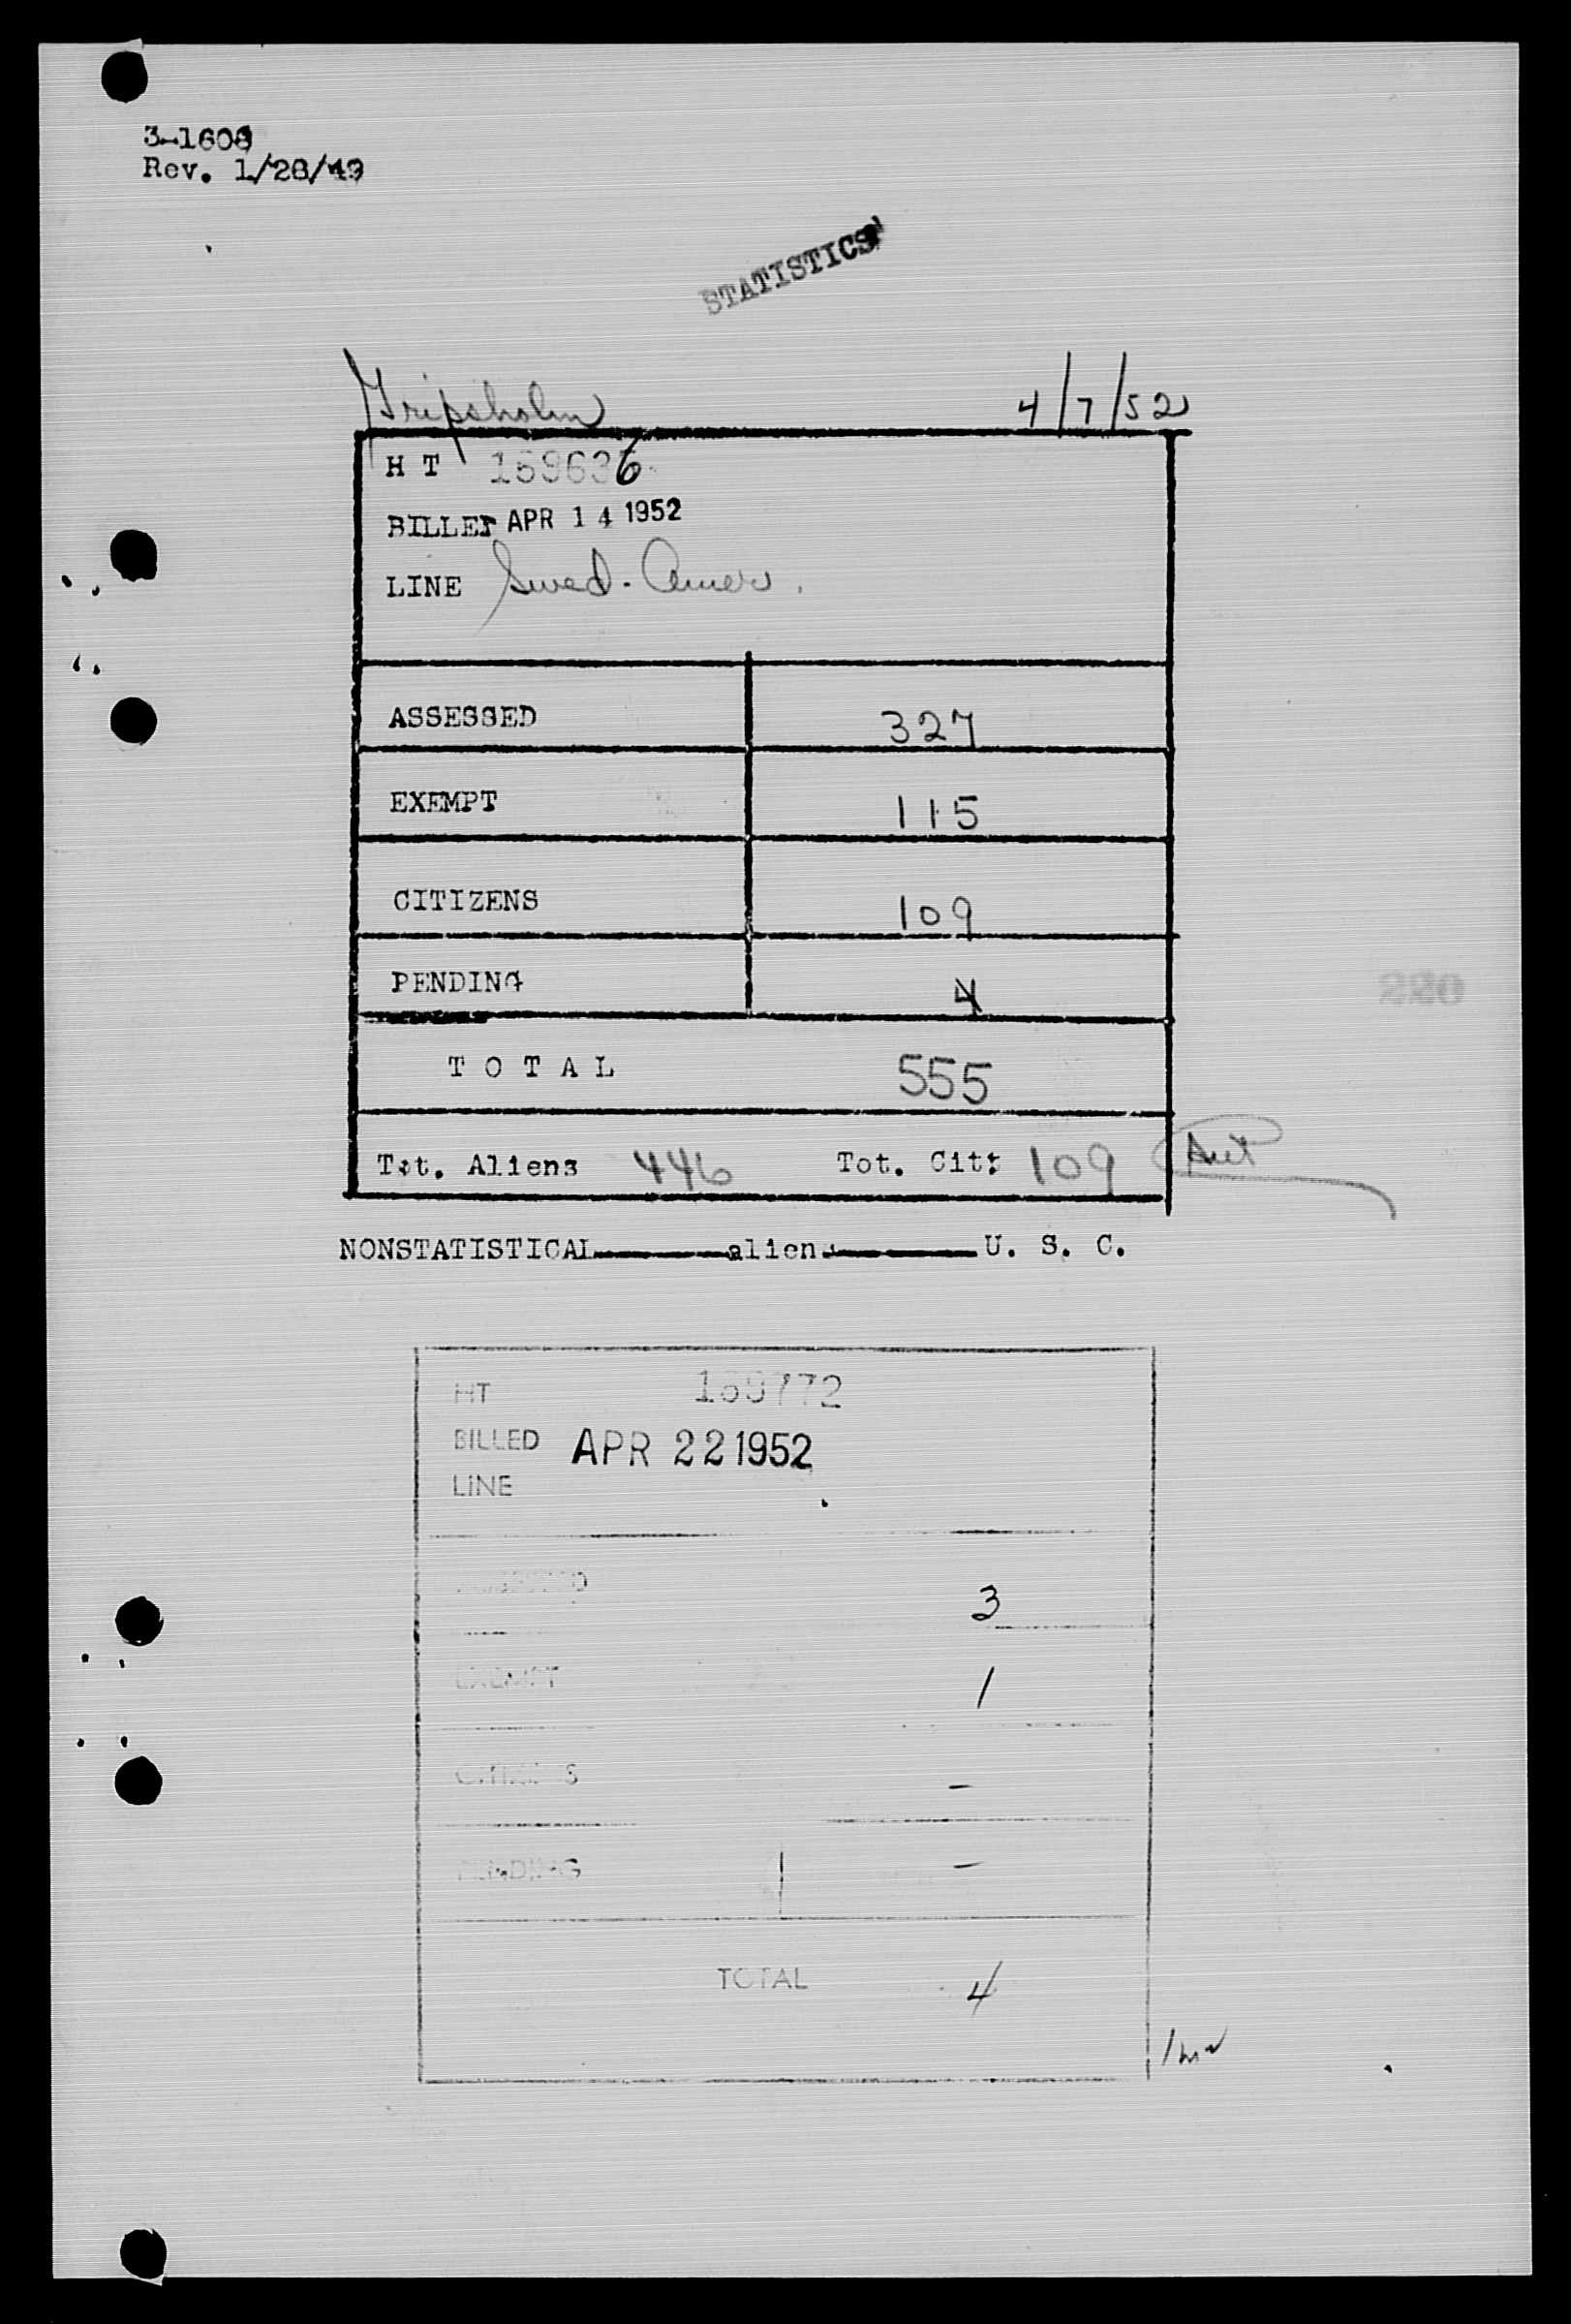 3-1608
Rev. 1/28/49
STATISTICS
Gripsholm 4/7/52
H T 169636
BILLED APR 14 1952
LINE Swed. Amer.
ASSESSED 327
EXEMPT 115
CITIZENS 109
PENDING 4
T O T A L 555
Tot. Aliens 446 Tot. Cit: 109
NONSTATISTICAL aliens U. S. C.
HT 169772
BILLED APR 22 1952
LINE
ASSESSED 3
EXEMPT 1
CITIZENS -
PENDING -
TOTAL 4